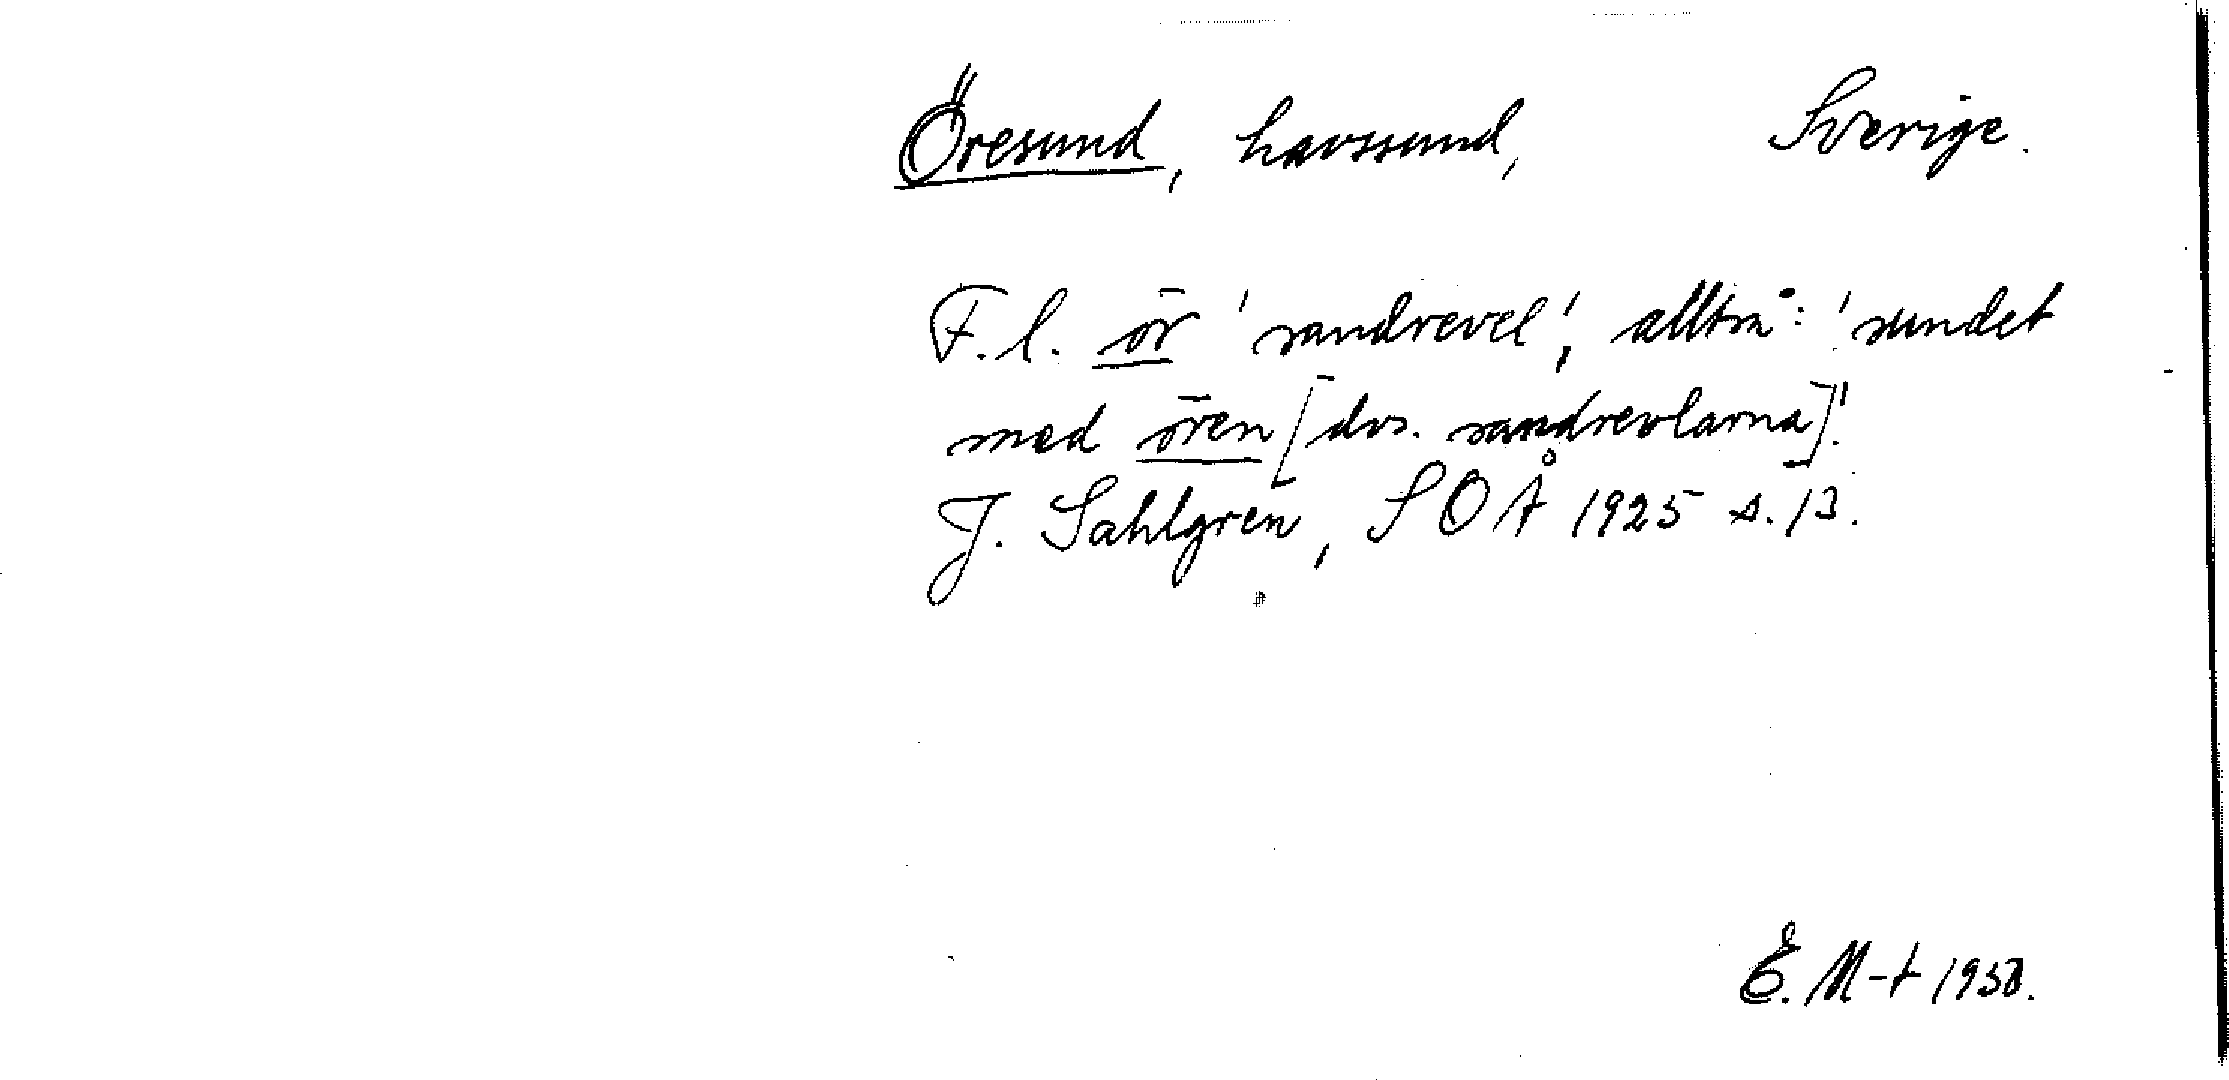 Öresund, havssund, Sverige.
F.l. ör 'sandrevel', alltså: 'sundet
med ören [dvs. sandrevlarna]'.
J. Sahlgren, SOÅ 1925 s. 13.
E. M-t 1938.